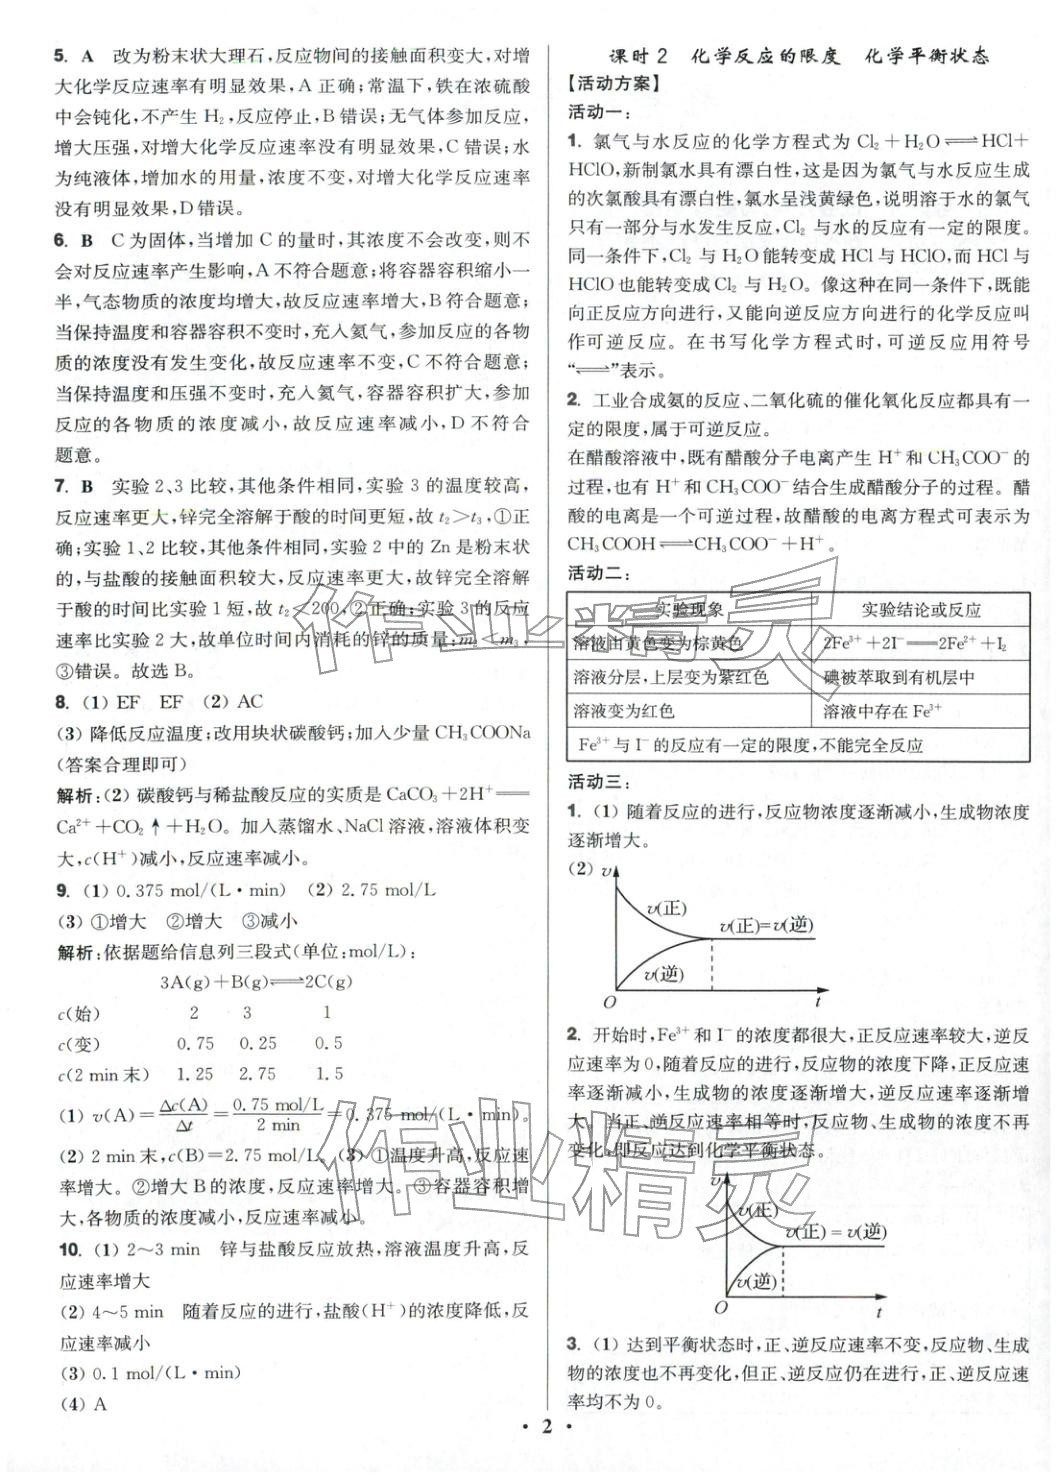 5. A 改为粉末状大理石,反应物间的接触面积变大,对增
大化学反应速率有明显效果,A 正确;常温下,铁在浓硫酸
中会钝化,不产生 H₂,反应停止,B 错误;无气体参加反应,
增大压强,对增大化学反应速率没有明显效果,C 错误;水
为纯液体,增加水的用量,浓度不变,对增大化学反应速率
没有明显效果,D 错误。
6. B C 为固体,当增加 C 的量时,其浓度不会改变,则不
会对反应速率产生影响,A 不符合题意;将容器容积缩小一
半,气态物质的浓度均增大,故反应速率增大,B 符合题意;
当保持温度和容器容积不变时,充入氦气,参加反应的各物
质的浓度没有发生变化,故反应速率不变,C 不符合题意;
当保持温度和压强不变时,充入氦气,容器容积扩大,参加
反应的各物质的浓度减小,故反应速率减小,D 不符合
题意。
7. B 实验 2、3 比较,其他条件相同,实验 3 的温度较高,
反应速率更大,锌完全溶解于酸的时间更短,故 t₂>t₃,①正
确;实验 1、2 比较,其他条件相同,实验 2 中的 Zn 是粉末状
的,与盐酸的接触面积较大,反应速率更大,故锌完全溶解
于酸的时间比实验 1 短,故 t₂<200,②正确;实验 3 的反应
速率比实验 2 大,故单位时间内消耗的锌的质量:m₂<m₃,
③错误。故选 B。
8. (1) EF EF (2) AC
(3) 降低反应温度;改用块状碳酸钙;加入少量 CH₃COONa
(答案合理即可)
解析:(2) 碳酸钙与稀盐酸反应的实质是 CaCO₃+2H⁺══
Ca²⁺+CO₂↑+H₂O。加入蒸馏水、NaCl 溶液,溶液体积变
大,c(H⁺)减小,反应速率减小。
9. (1) 0.375 mol/(L·min) (2) 2.75 mol/L
(3) ①增大 ②增大 ③减小
解析:依据题给信息列三段式(单位:mol/L):
3A(g)+B(g)⇌2C(g)
c(始) 2 3 1
c(变) 0.75 0.25 0.5
c(2 min 末) 1.25 2.75 1.5
(1) v(A)=Δc(A)/Δt=0.75 mol/L/2 min=0.375 mol/(L·min)。
(2) 2 min 末,c(B)=2.75 mol/L。(3) ①温度升高,反应速
率增大。②增大 B 的浓度,反应速率增大。③容器容积增
大,各物质的浓度减小,反应速率减小。
10. (1) 2~3 min 锌与盐酸反应放热,溶液温度升高,反
应速率增大
(2) 4~5 min 随着反应的进行,盐酸(H⁺)的浓度降低,反
应速率减小
(3) 0.1 mol/(L·min)
(4) A
课时 2 化学反应的限度 化学平衡状态
【活动方案】
活动一:
1. 氯气与水反应的化学方程式为 Cl₂+H₂O⇌HCl+
HClO,新制氯水具有漂白性,这是因为氯气与水反应生成
的次氯酸具有漂白性,氯水呈浅黄绿色,说明溶于水的氯气
只有一部分与水发生反应,Cl₂ 与水的反应有一定的限度。
同一条件下,Cl₂ 与 H₂O 能转变成 HCl 与 HClO,而 HCl 与
HClO 也能转变成 Cl₂ 与 H₂O。像这种在同一条件下,既能
向正反应方向进行,又能向逆反应方向进行的化学反应叫
作可逆反应。在书写化学方程式时,可逆反应用符号
“⇌”表示。
2. 工业合成氨的反应、二氧化硫的催化氧化反应都具有一
定的限度,属于可逆反应。
在醋酸溶液中,既有醋酸分子电离产生 H⁺和 CH₃COO⁻的
过程,也有 H⁺和 CH₃COO⁻结合生成醋酸分子的过程。醋
酸的电离是一个可逆过程,故醋酸的电离方程式可表示为
CH₃COOH⇌CH₃COO⁻+H⁺。
活动二:
实验现象 实验结论或反应
溶液由黄色变为棕黄色 2Fe³⁺+2I⁻══2Fe²⁺+I₂
溶液分层,上层变为紫红色 碘被萃取到有机层中
溶液变为红色 溶液中存在 Fe³⁺
Fe³⁺与 I⁻的反应有一定的限度,不能完全反应
活动三:
1. (1) 随着反应的进行,反应物浓度逐渐减小,生成物浓度
逐渐增大。
(2) v
v(正)
v(正)=v(逆)
v(逆)
O t
2. 开始时,Fe³⁺和 I⁻的浓度都很大,正反应速率较大,逆反
应速率为 0,随着反应的进行,反应物的浓度下降,正反应速
率逐渐减小,生成物的浓度逐渐增大,逆反应速率逐渐增
大。当正、逆反应速率相等时,反应物、生成物的浓度不再
变化,即反应达到化学平衡状态。
v
v(正)
v(正)=v(逆)
v(逆)
O t
3. (1) 达到平衡状态时,正、逆反应速率不变,反应物、生成
物的浓度也不再变化,但正、逆反应仍在进行,正、逆反应速
率均不为 0。
· 2 ·
作业精灵
作业精灵